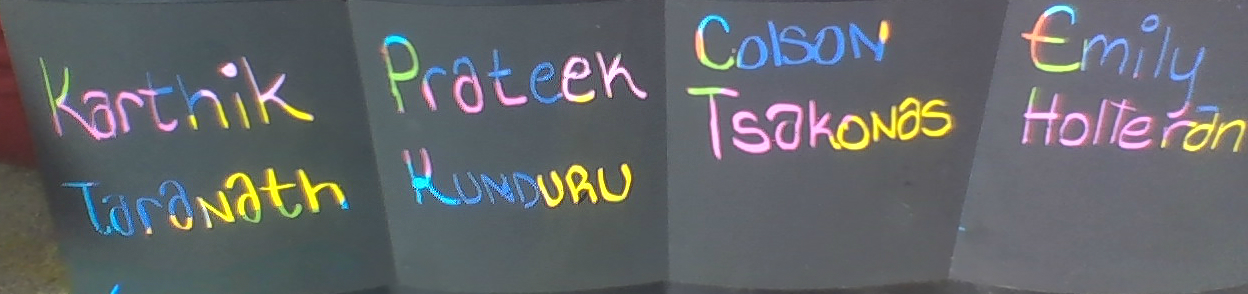 Karthik
Taranath
Prateek
KUNDURU
Colson
Tsakonas
Emily
Holteran